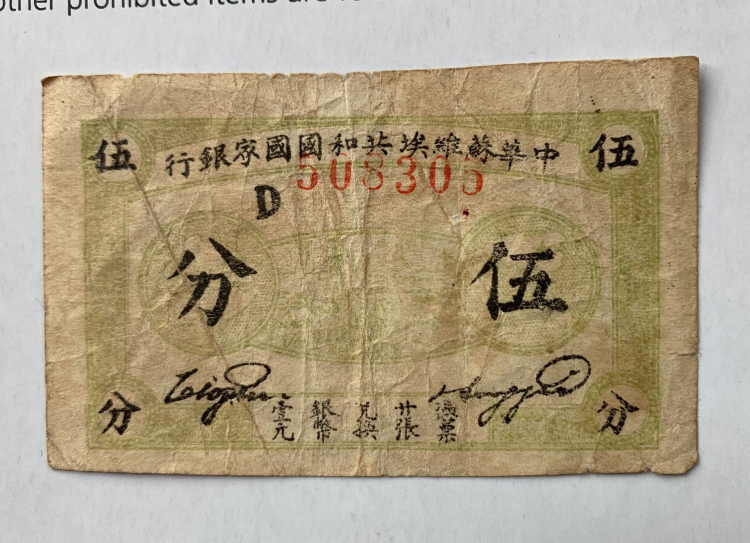 other prohibited items are
伍 中華蘇維埃共和國國家銀行 伍
D 508305
伍分
憑票廿張兌換銀幣壹元
分 分